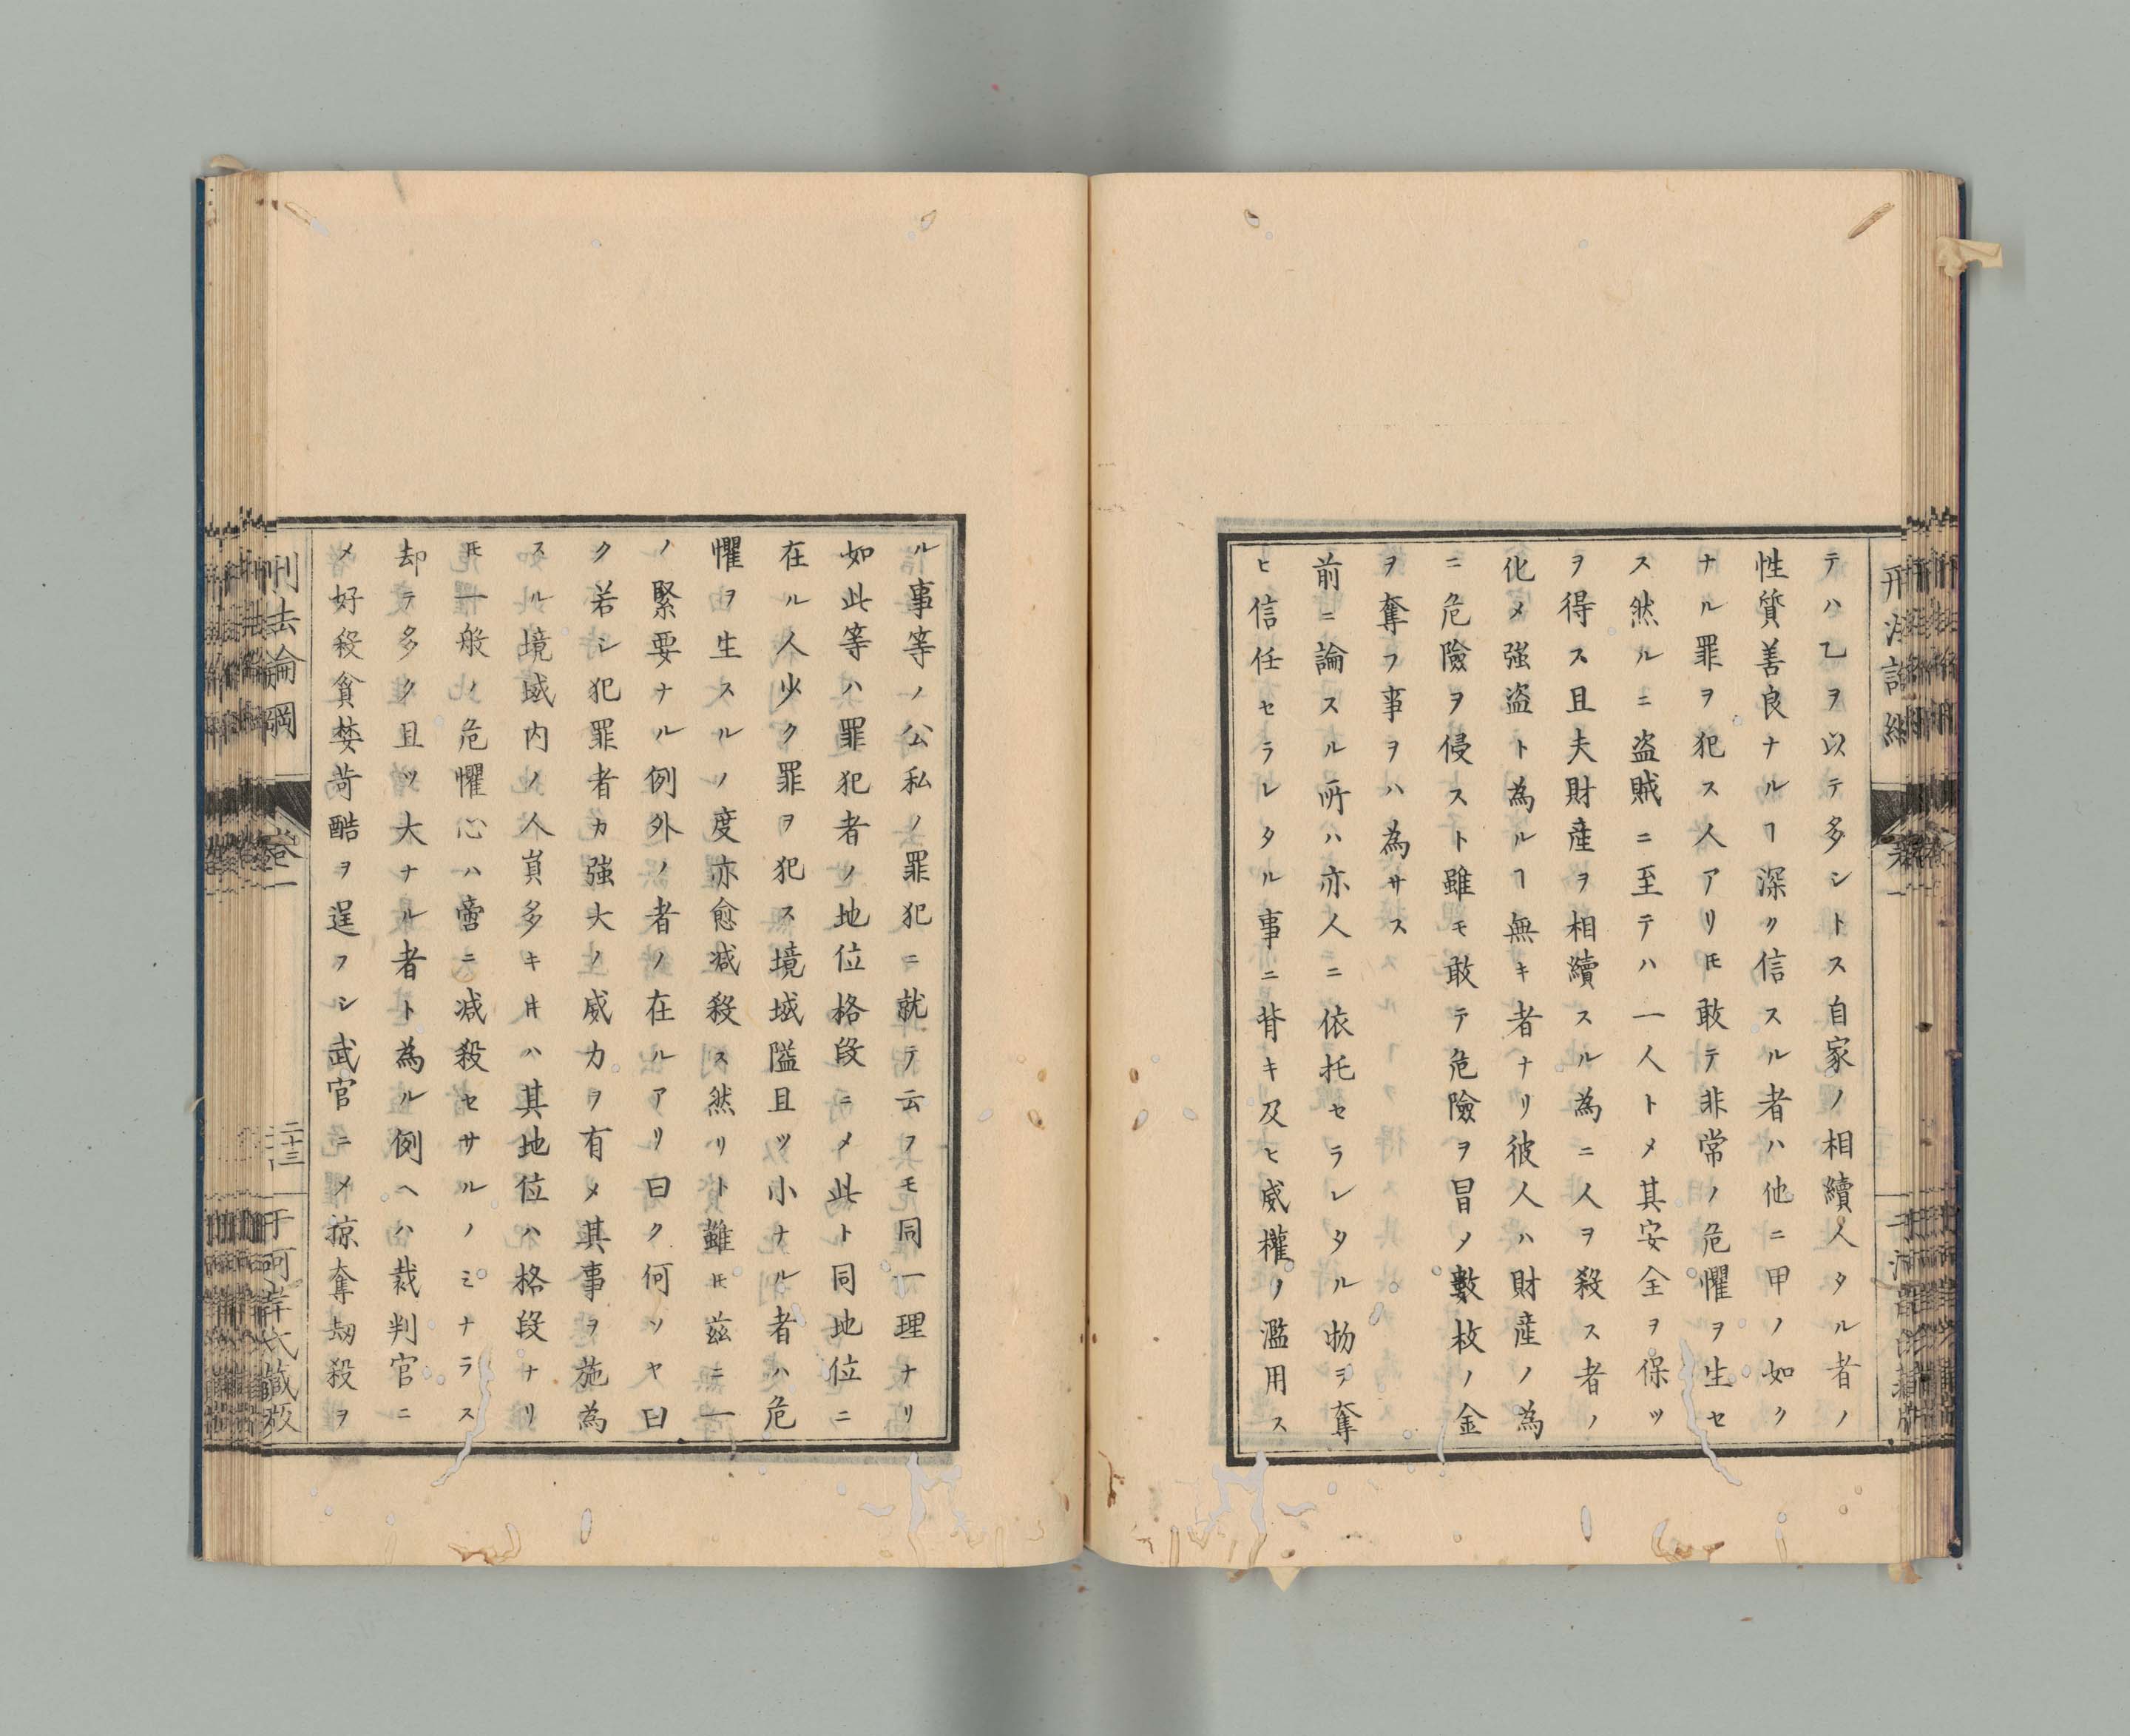 テハ乙ヲ以テ多シトス自家ノ相續人タル者ノ
性質善良ナルヿ深ク信スル者ハ他ニ甲ノ如ク
ナル罪ヲ犯ス人アリ𪜈敢テ非常ノ危懼ヲ生セ
ス然ルニ盗賊ニ至テハ一人トメ其安全ヲ保ツ
ヲ得ス且夫財產ヲ相續スル為ニ人ヲ殺ス者ノ
化メ强盗ト為ルヿ無キ者ナリ彼人ハ財產ノ為
ニ危險ヲ侵スト雖モ敢テ危險ヲ冒メ數枚ノ金
ヲ奪フ事ヲハ為サス
前ニ論スル所ハ亦人ニ依托セラレタル物ヲ奪
ヒ信任セラレタル事ニ背キ及ヒ威權ノ濫用ス
ル事等ノ公私ノ罪犯ニ就テ云フモ同一理ナリ
如此等ハ罪犯者ノ地位格段ニメ此ト同地位ニ
在ル人少ク罪ヲ犯ス境域隘且ツ小ナル者ハ危
懼ヲ生スルノ度亦愈減殺ス然リト雖𪜈茲ニ一
ノ緊要ナル例外ノ者ノ在ルアリ曰ク何ソヤ曰
ク若シ犯罪者カ強大ノ威力ヲ有メ其事ヲ施為
スル境域内ノ人員多キ𪜈ハ其地位ハ格段ナリ
𪜈一般ノ危懼心ハ啻ニ減殺セサルノミナラス
却テ多ク且ツ大ナル者ト為ル例ヘハ裁判官ニ
メ好殺貧婪苛酷ヲ逞フシ武官ニメ掠奪劫殺ヲ
刑法論綱
卷一
二十三